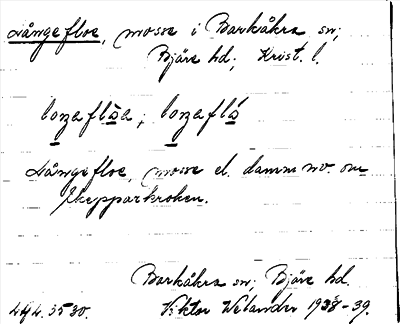 Långefloe, mosse i Barkåkra sn;
Bjäre hd; Krist. l.
loŋaflòa; loŋaflá
Långefloe, mosse el. damm nv. om
Skepparkroken.
Barkåkra sn; Bjäre hd.
494.3530. Viktor Welander 1938-39.